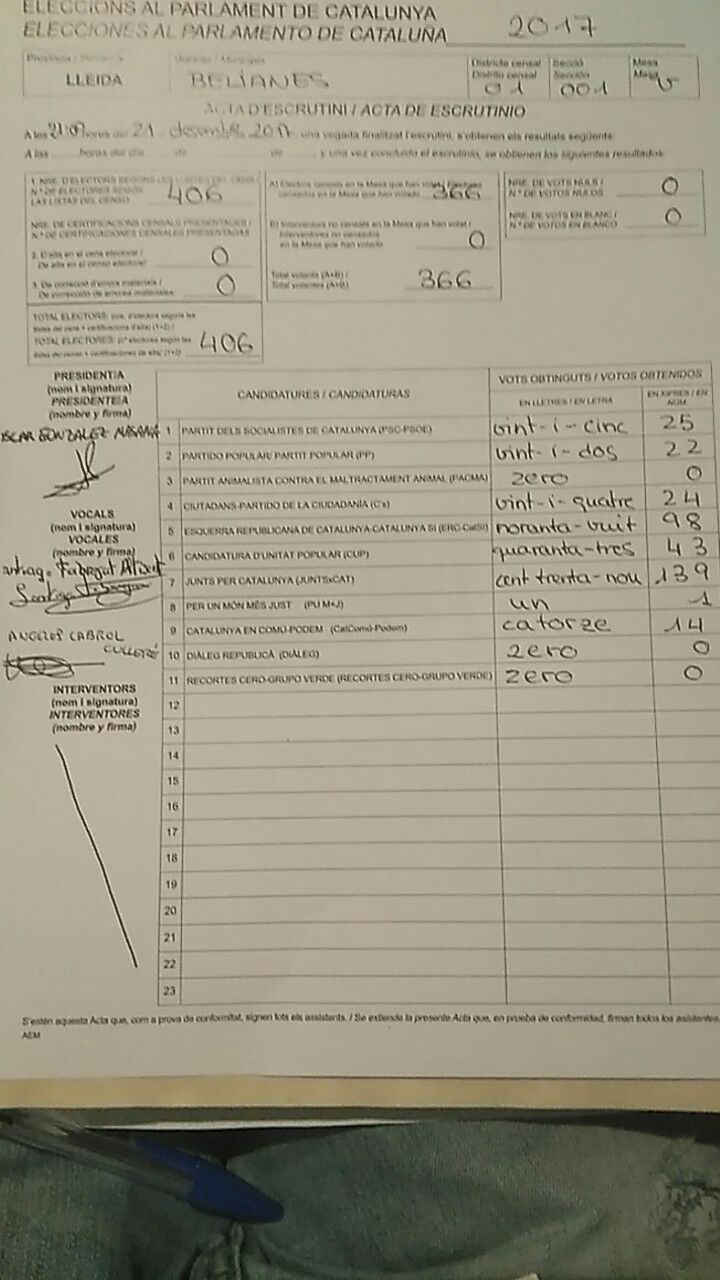 ELECCIONS AL PARLAMENT DE CATALUNYA
ELECCIONES AL PARLAMENTO DE CATALUÑA 2017
LLEIDA
BELIANES
Districte censal
Distrito censal
01
Secció
Sección
001
Mesa
Mesa
U
ACTA D'ESCRUTINI / ACTA DE ESCRUTINIO
A les hores del 21 desembre 2017, una vegada finalitzat l'escrutini, s'obtenen els resultats següents:
A las horas del día de de y una vez concluido el escrutinio, se obtienen los siguientes resultados:
1. NRE. D'ELECTORS SEGONS LES LLISTES DEL CENS /
N.º DE ELECTORES SEGÚN
LAS LISTAS DEL CENSO 406
NRE. DE CERTIFICACIONS CENSALS PRESENTADES /
N.º DE CERTIFICACIONES CENSALES PRESENTADAS
2. D'alta en el cens electoral /
De alta en el censo electoral 0
3. De correcció d'errors materials /
De corrección de errores materiales 0
TOTAL ELECTORS: (nre. d'electors segons les
llistes del cens + certificacions d'alta) (1+2) /
TOTAL ELECTORES: (nº electores según las
listas del censo + certificaciones de alta) (1+2) 406
A) Electors censats en la Mesa que han votat / Electores
censados en la Mesa que han votado 366
B) Interventors no censats en la Mesa que han votat /
Interventores no censados
en la Mesa que han votado 0
Total votants (A+B) /
Total votantes (A+B) 366
NRE. DE VOTS NULS /
N.º DE VOTOS NULOS 0
NRE. DE VOTS EN BLANC /
N.º DE VOTOS EN BLANCO 0
PRESIDENT/A
(nom i signatura)
PRESIDENTE/A
(nombre y firma)
OSCAR GONZALEZ
VOCALS
(nom i signatura)
VOCALES
(nombre y firma)
ANGELS CABROL
INTERVENTORS
(nom i signatura)
INTERVENTORES
(nombre y firma)
CANDIDATURES / CANDIDATURAS
VOTS OBTINGUTS / VOTOS OBTENIDOS
EN LLETRES / EN LETRA
EN XIFRES / EN NÚM.
1 PARTIT DELS SOCIALISTES DE CATALUNYA (PSC-PSOE) vint-i-cinc 25
2 PARTIDO POPULAR/ PARTIT POPULAR (PP) vint-i-dos 22
3 PARTIT ANIMALISTA CONTRA EL MALTRACTAMENT ANIMAL (PACMA) zero 0
4 CIUTADANS-PARTIDO DE LA CIUDADANÍA (C's) vint-i-quatre 24
5 ESQUERRA REPUBLICANA DE CATALUNYA-CATALUNYA SÍ (ERC-CatSí) noranta-vuit 98
6 CANDIDATURA D'UNITAT POPULAR (CUP) quaranta-tres 43
7 JUNTS PER CATALUNYA (JUNTSxCAT) cent trenta-nou 139
8 PER UN MÓN MÉS JUST (PU M+J) un 1
9 CATALUNYA EN COMÚ-PODEM (CatComú-Podem) catorze 14
10 DIÀLEG REPUBLICÀ (DIÀLEG) zero 0
11 RECORTES CERO-GRUPO VERDE (RECORTES CERO-GRUPO VERDE) zero 0
12
13
14
15
16
17
18
19
20
21
22
23
S'estén aquesta Acta que, com a prova de conformitat, signen tots els assistents. / Se extiende la presente Acta que, en prueba de conformidad, firman todos los asistentes.
AEM